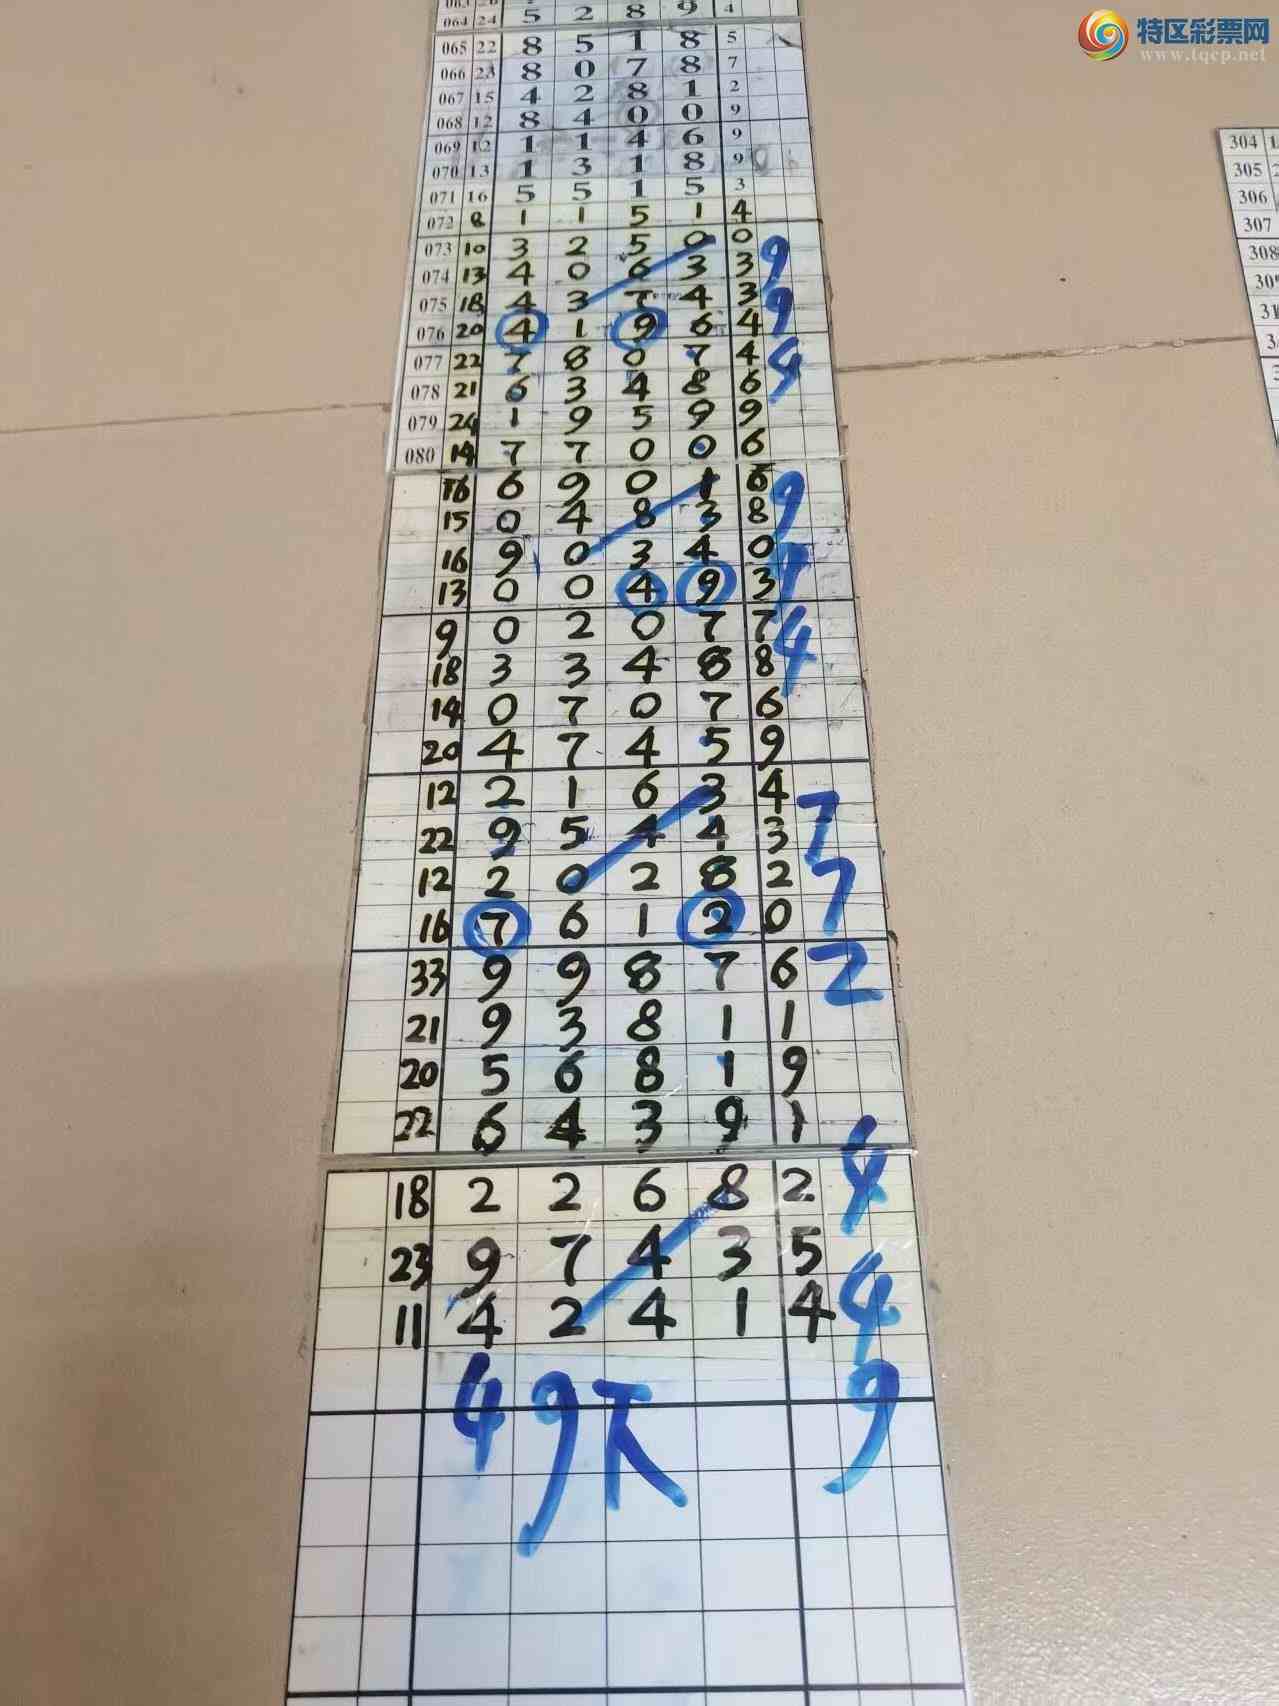 特区彩票网
www.tqcp.net
064 24 5 2 8 9 4
065 22 8 5 1 8 5
066 23 8 0 7 8 7
067 15 4 2 8 1 2
068 12 8 4 0 0 9
069 12 1 1 4 6 9
070 13 1 3 1 8 9
071 16 5 5 1 5 3
072 8 1 1 5 1 4
073 10 3 2 5 0 0 9
074 13 4 0 6 3 3
075 18 4 3 7 4 3 9
076 20 4 1 9 6 4
077 22 7 8 0 7 4 4
078 21 6 3 4 8 6
079 24 1 9 5 9 9
080 14 7 7 0 0 6
16 6 9 0 1 6 9
15 0 4 8 3 8
16 9 0 3 4 0 9
13 0 0 4 9 3
9 0 2 0 7 7 4
18 3 3 4 8 8
14 0 7 0 7 6
20 4 7 4 5 9
12 2 1 6 3 4 7
22 9 5 4 4 3
12 2 0 2 8 2 7
16 7 6 1 2 0
33 9 9 8 7 6 2
21 9 3 8 1 1
20 5 6 8 1 9
22 6 4 3 9 1
18 2 2 6 8 2 4
23 9 7 4 3 5
11 4 2 4 1 4 4
4 9 下 9
304
305
306
307
308